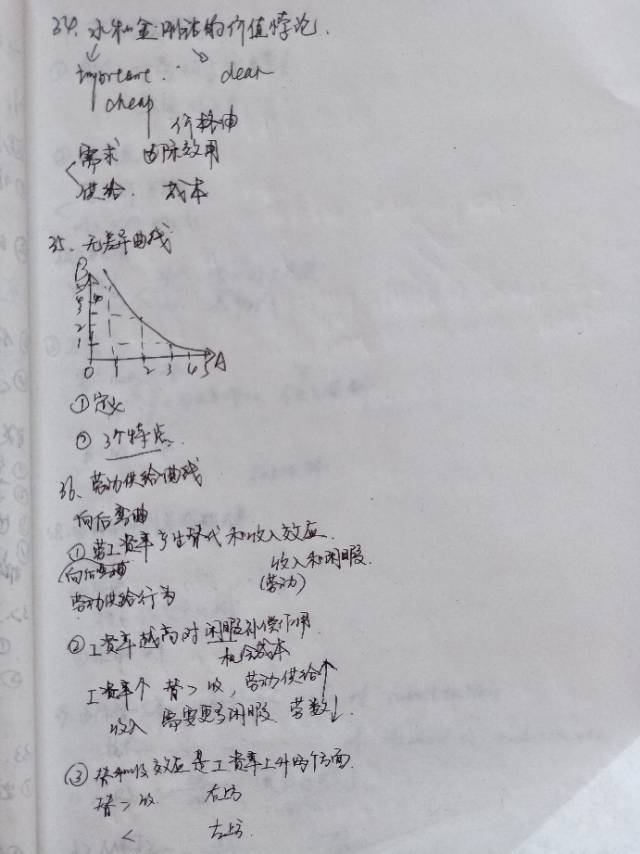 34. 水和金刚钻的价值悖论.
important dear
cheap
价格由
需求 边际效用
供给. 成本
35. 无差异曲线
B
5
3
2
1
0 1 2 3 4 5 A
① 定义
② 3个特点.
36. 劳动供给曲线
向后弯曲
① 劳工资率产生替代和收入效应.
向后弯曲 收入和闲暇.
(劳动)
劳动供给行为
② 工资率越高对闲暇补偿作用
机会成本
工资率个 替>收, 劳动供给↑
收入 需要更多闲暇 劳数↓.
③ 替和收效应是工资率上升的个方面.
替>收. 右上方
< 左上方.